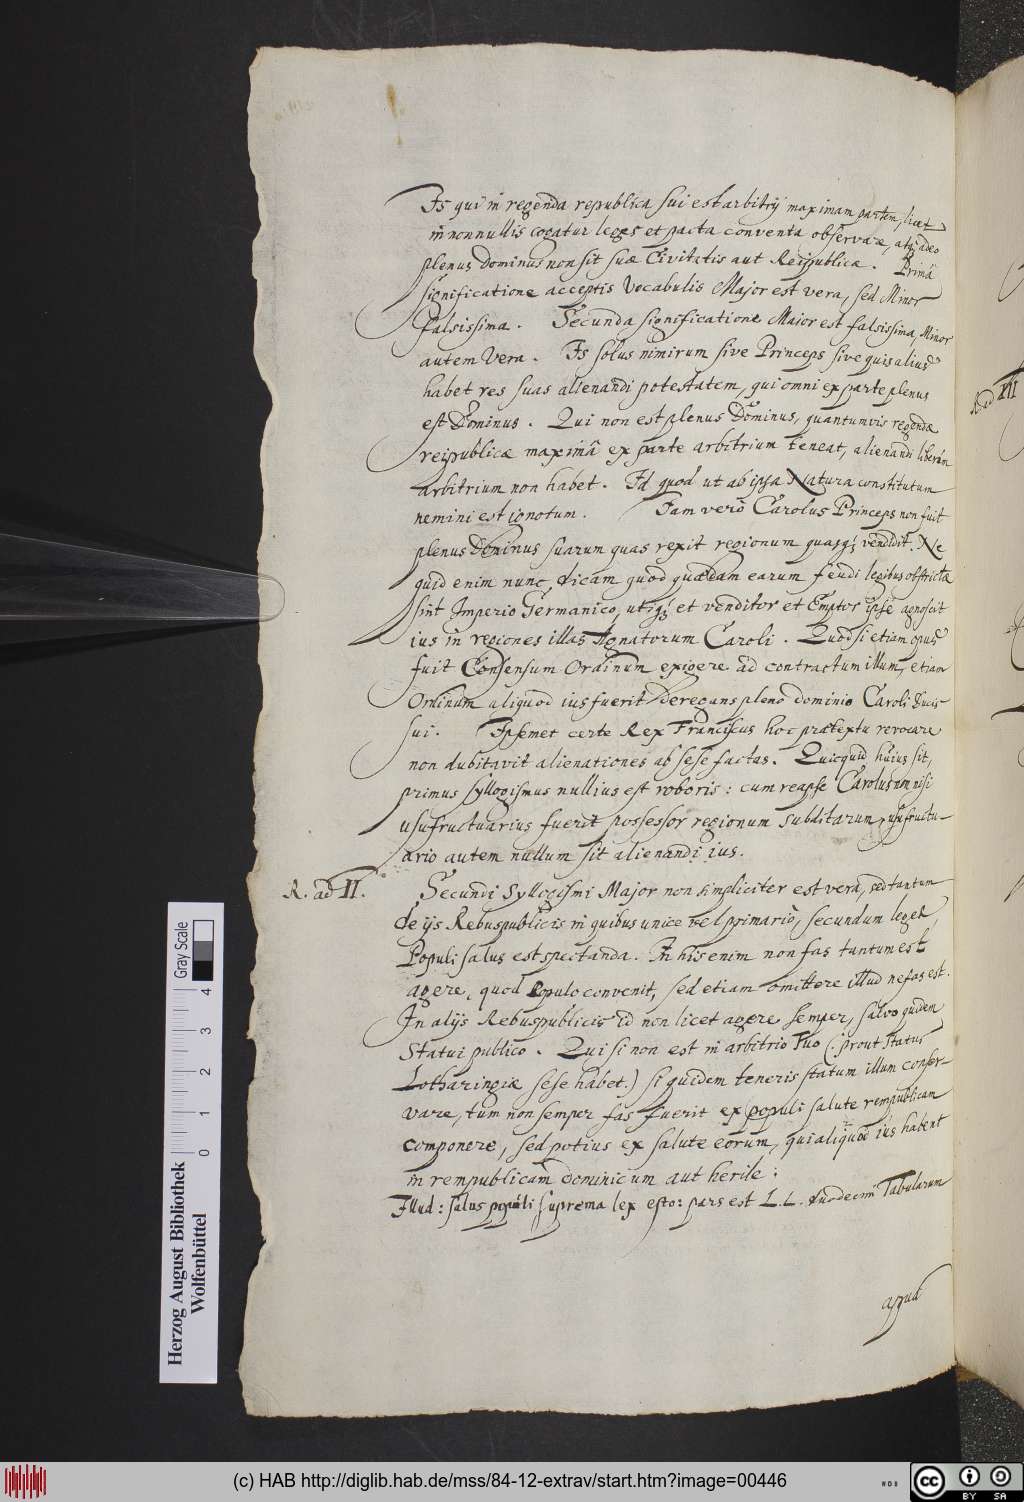 Is qui in regenda republica sui est arbitrij maximam partem, licet
in nonnullis cogatur leges et pacta conventa observare, atq; adeo
plenus Dominus non sit suæ Civitatis aut Reipublicæ. Primâ
significatione acceptis Vocabulis Major est vera, sed Minor
falsissima. Secunda significatione Maior est falsissima, Minor
autem Vera. Is solus nimirum sive Princeps sive quis alius
habet res suas alienandi potestatem, qui omni ex parte plenus
est Dominus. Qui non est plenus Dominus, quantumvis regendæ
reipublicæ maximâ ex parte arbitrium teneat, alienandi liberûm
arbitrium non habet. Id quod ut ab ipsa Natura constitutum
nemini est ignotum. Iam verò Carolus Princeps non fuit
plenus Dominus suarum quas rexit regionum quasq; vendidit. Ne
quid enim nunc, dicam quod quædam earum feudi legibus obstrictæ
sint Imperio Germanico, utiq; et venditor et Emptor ipse agnoscit
ius in regiones illas Agnatorum Caroli. Quod si etiam opus
fuit Consensum Ordinum exigere ad contractum illum, etiam
Ordinum aliquod ius fuerit derogans pleno dominio Caroli Ducis
sui. Ipsemet certe Rex Franciscus hoc prætextu revocare
non dubitavit alienationes ab sese factas. Quicquid huius sit,
primus syllogismus nullius est roboris: cum reapse Carolus non nisi
usufructuarius fuerit possessor regionum subditarum, usufructu-
ario autem nullum sit alienandi ius.
R. ad II. Secundi Syllogismi Major non simpliciter est vera, sed tantum
de ijs Rebuspublicis in quibus unice vel primariò, secundum leges,
Populi salus est spectanda. In his enim non fas tantum est
agere, quod Populo convenit, sed etiam omittere illud nefas est.
In alijs Rebuspublicis id non licet agere semper, salvo quidem
Statui publico. Qui si non est in arbitrio tuo (: prout Status
Lotharingiæ sese habet.) siquidem teneris statum illum conser-
vare, tum non semper fas fuerit ex populi salute rempublicam
componere, sed potius ex salute eorum, qui aliquod ius habent
in rempublicam dominicum aut herile:
Illud: salus populi suprema lex esto: pars est L.L. duodecim Tabularum
apud
R ad III
Herzog August Bibliothek
Wolfenbüttel
0 1 2 3 4
Gray Scale
(c) HAB http://diglib.hab.de/mss/84-12-extrav/start.htm?image=00446
WDB
cc BY SA